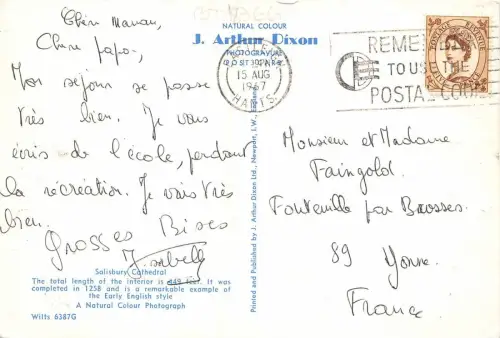 Chère Maman,
Cher papa,
Mon séjour se passe
très bien. Je vous
écris de l'école, pendant
la récréation. Je vais très
bien.
Grosses Bises
Isabelle
Salisbury Cathedral
The total length of the interior is 449 feet. It was
completed in 1258 and is a remarkable example of
the Early English style
A Natural Colour Photograph
Wilts 6387G
NATURAL COLOUR
J. Arthur Dixon
PHOTOGRAVURE
POST
Printed and Published by J. Arthur Dixon Ltd., Newport, I.W., England.
15 AUG
1967
HANTS.
REMEMBER
TO USE THE
POSTAL CODE
POSTAGE REVENUE
Monsieur et Madame
Faingold.
Fontenille par Brosses
89 Yonne.
France